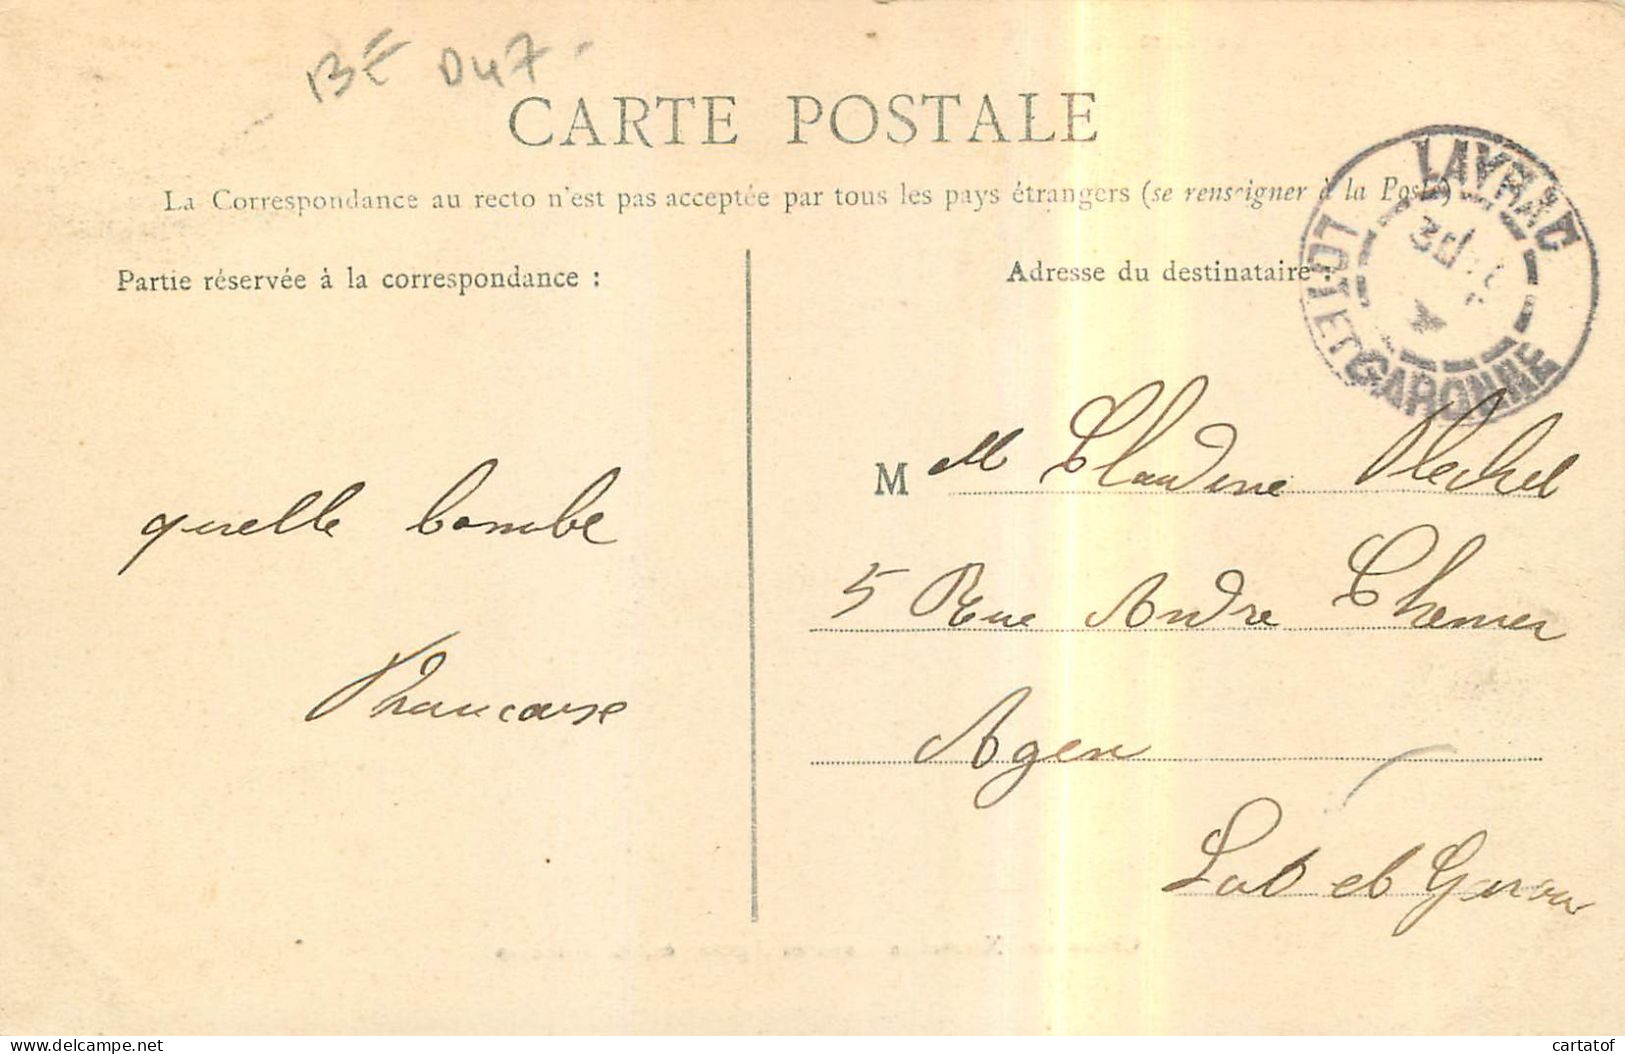 BE D47 -
CARTE POSTALE
La Correspondance au recto n'est pas acceptée par tous les pays étrangers (se renseigner à la Poste)
LAYRAC
LOT-ET-GARONNE
30
Partie réservée à la correspondance :
Adresse du destinataire :
quelle bombe
Francoise
M elle Claudine
5 Rue Andre
Agen
Lot et Garonne
cartatof